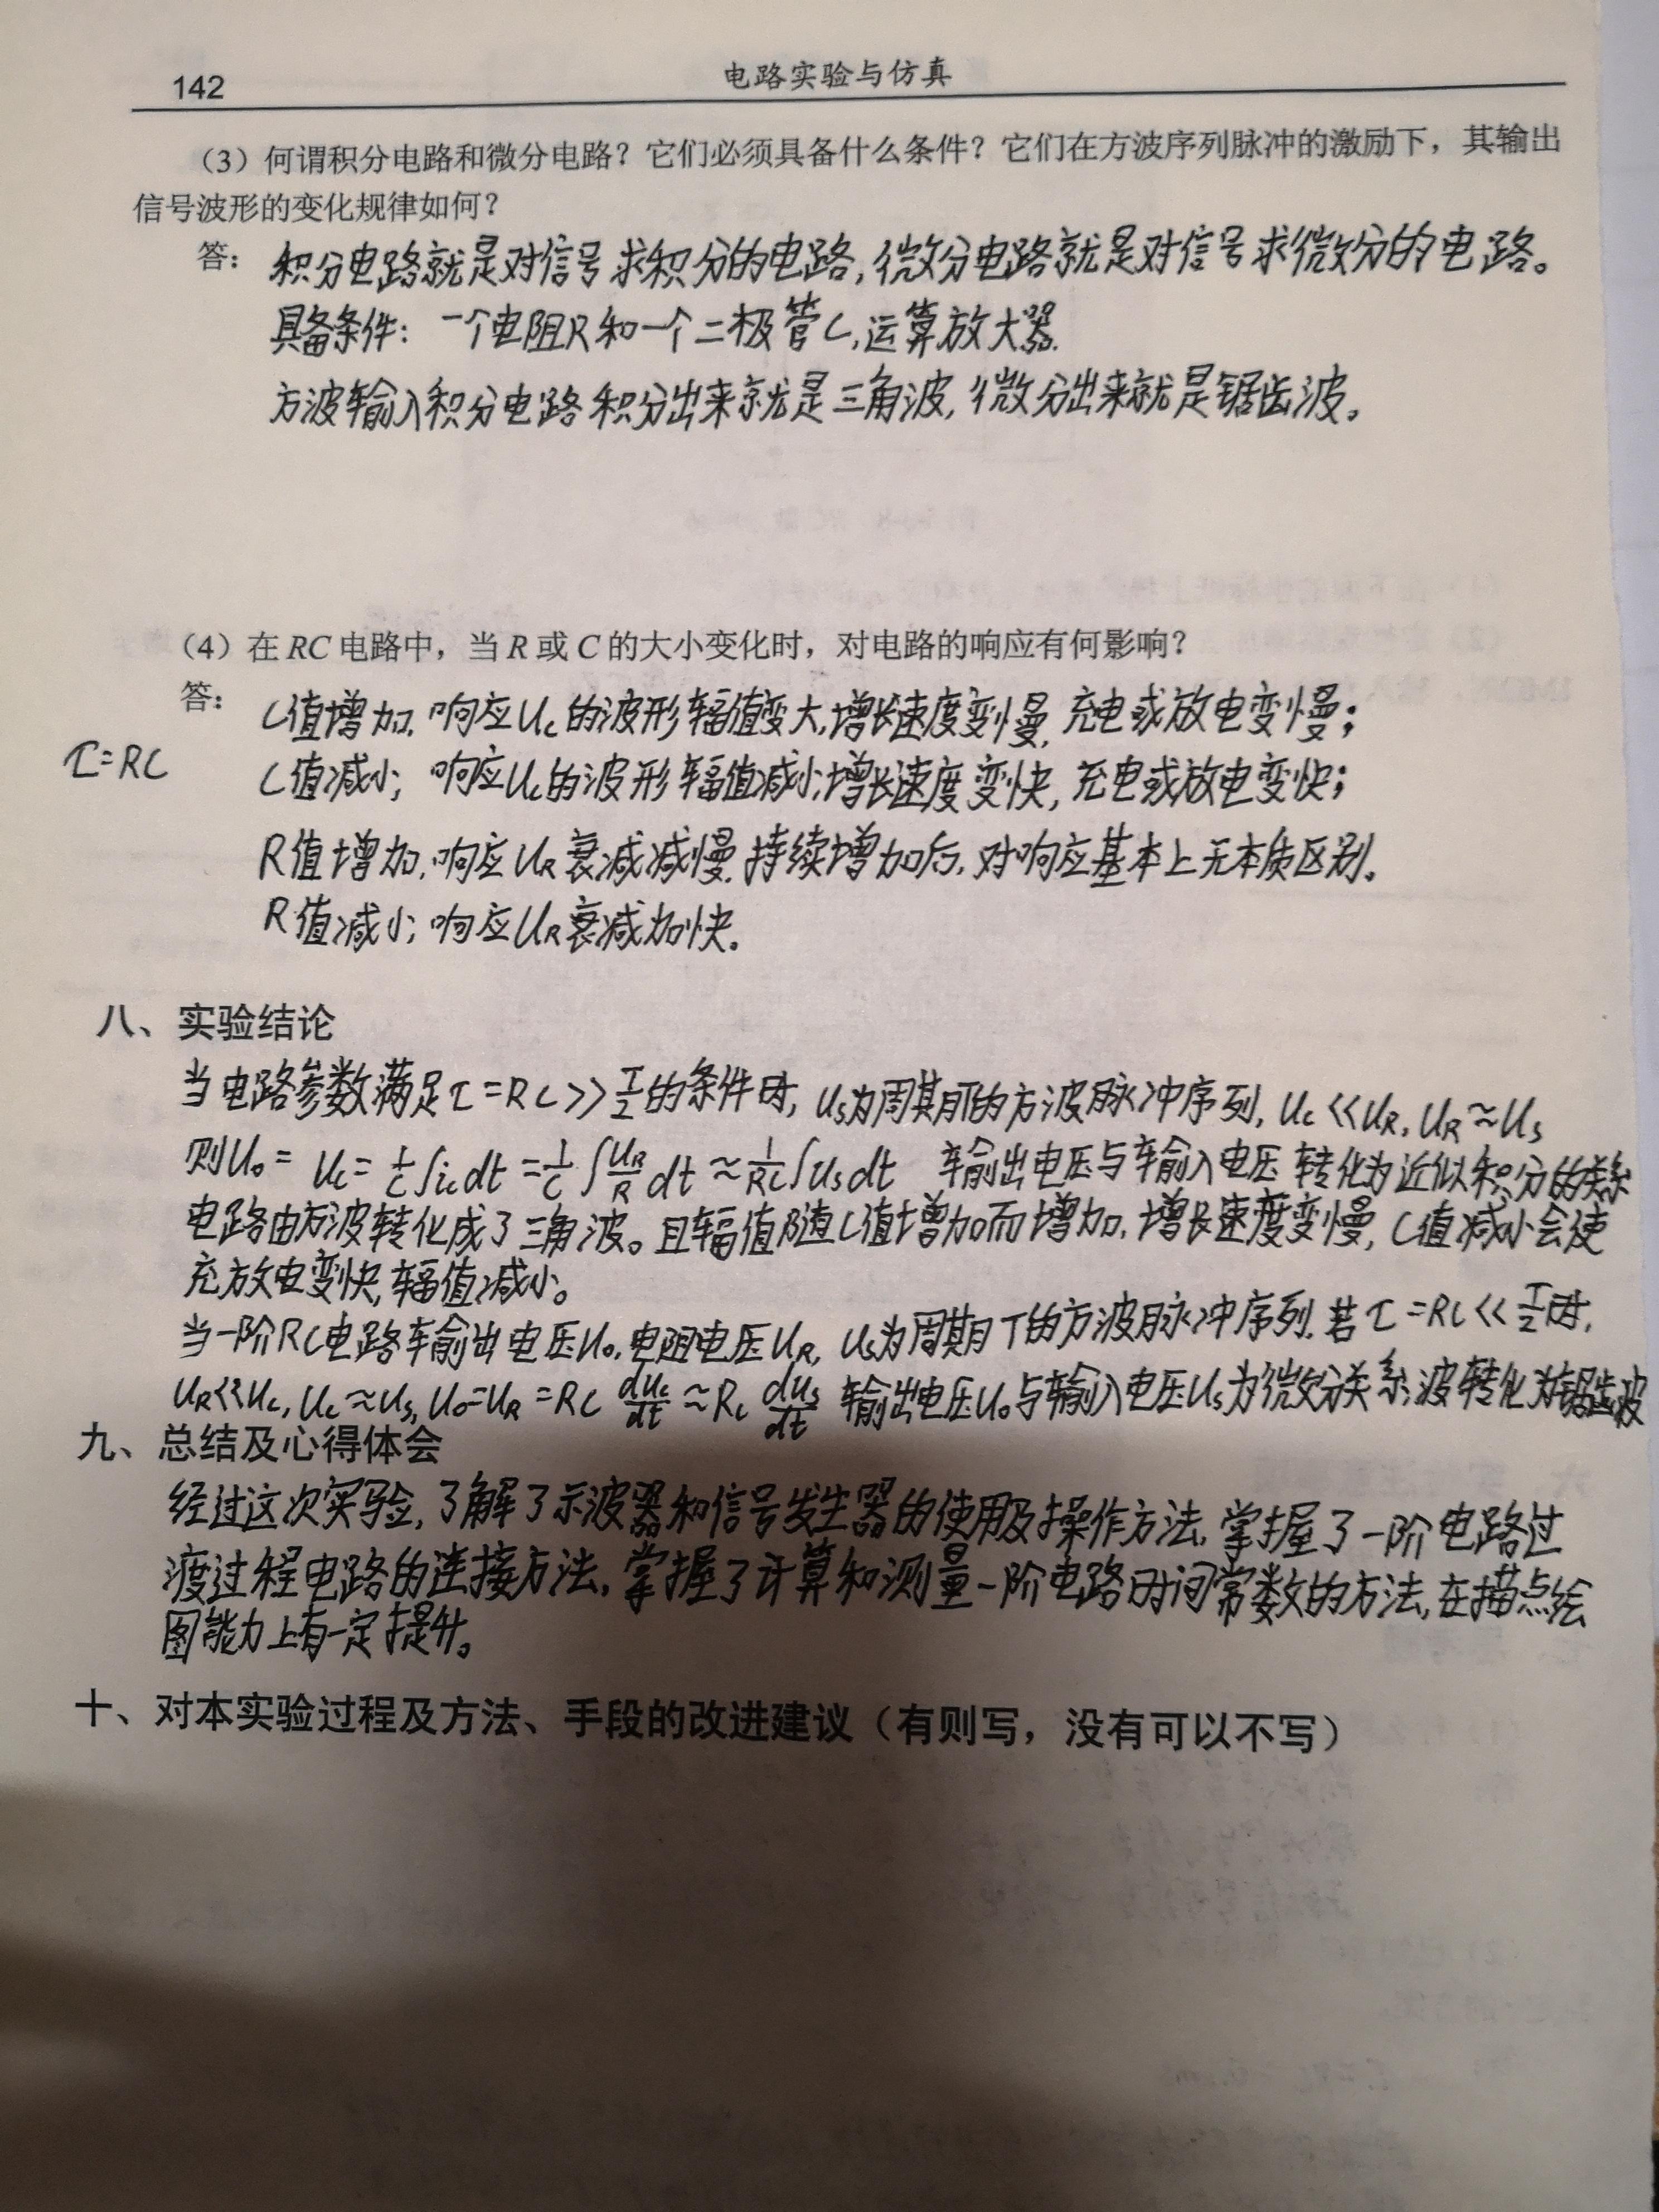 142
电路实验与仿真
（3）何谓积分电路和微分电路？它们必须具备什么条件？它们在方波序列脉冲的激励下，其输出
信号波形的变化规律如何？
答：积分电路就是对信号求积分的电路，微分电路就是对信号求微分的电路。
具备条件：一个电阻R和一个二极管C，运算放大器.
方波输入积分电路积分出来就是三角波，微分出来就是锯齿波。
（4）在RC电路中，当R或C的大小变化时，对电路的响应有何影响？
答：C值增加，响应Uc的波形辐值变大，增长速度变慢，充电或放电变慢；
τ=RC
C值减小；响应Uc的波形辐值减小；增长速度变快，充电或放电变快；
R值增加，响应UR衰减减慢，持续增加后，对响应基本上无本质区别。
R值减小；响应UR衰减加快。
八、实验结论
当电路参数满足τ=RC>>T/2的条件时，Us为周期T的方波脉冲序列，Uc<<UR，UR≈Us
则Uo= Uc=1/C∫ic dt=1/C∫UR/R dt≈1/RC∫Us dt 输出电压与输入电压转化为近似积分的关系
电路由方波转化成了三角波。且辐值随C值增加而增加，增长速度变慢，C值减小会使
充放电变快，辐值减小。
当一阶RC电路输出电压Uo，电阻电压UR，Us为周期T的方波脉冲序列，若τ=RC<<T/2时，
UR<<Uc，Uc≈Us，Uo=UR=RC dUc/dt≈RC dUs/dt 输出电压Uo与输入电压Us为微分关系，波转化为锯齿波
九、总结及心得体会
经过这次实验，了解了示波器和信号发生器的使用及操作方法，掌握了一阶电路过
渡过程电路的连接方法，掌握了计算和测量一阶电路时间常数的方法，在描点绘
图能力上有一定提升。
十、对本实验过程及方法、手段的改进建议（有则写，没有可以不写）